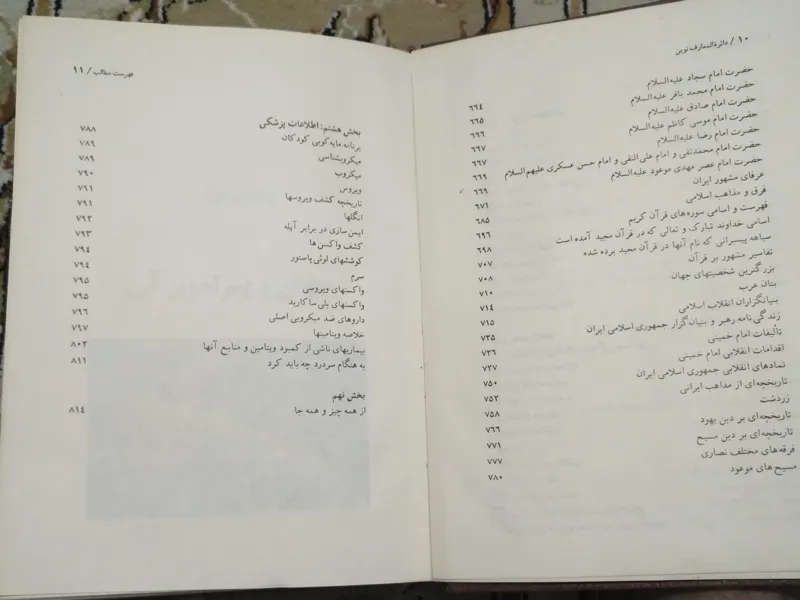 ۱۰ / دائرةالمعارف نوین
حضرت امام سجاد علیه‌السلام ۶۶۴
حضرت امام محمد باقر علیه‌السلام ۶۶۵
حضرت امام صادق علیه‌السلام ۶۶۶
حضرت امام موسی کاظم علیه‌السلام ۶۶۷
حضرت امام رضا علیه‌السلام ۶۶۷
حضرت امام محمدتقی و امام علی النقی و امام حسن عسکری علیهم‌السلام ۶۶۹
حضرت امام عصر مهدی موعود علیه‌السلام ۶۶۹
عرفای مشهور ایران ۶۷۱
فرق و مذاهب اسلامی ۶۸۵
فهرست و اسامی سوره‌های قرآن کریم ۶۹۶
اسامی خداوند تبارک و تعالی که در قرآن مجید آمده است ۶۹۸
سیاهه پیمبرانی که نام آنها در قرآن مجید برده شده ۷۰۷
تفاسیر مشهور بر قرآن ۷۰۸
بزرگترین شخصیتهای جهان ۷۱۰
بتان عرب ۷۱۴
بنیانگزاران انقلاب اسلامی ۷۱۵
زندگی‌نامه رهبر و بنیان‌گزار جمهوری اسلامی ایران ۷۲۵
تألیفات امام خمینی ۷۳۶
اقدامات انقلابی امام خمینی ۷۳۷
نمادهای انقلابی جمهوری اسلامی ایران ۷۵۰
تاریخچه‌ای از مذاهب ایرانی ۷۵۳
زردشت ۷۵۸
تاریخچه‌ای بر دین یهود ۷۶۶
تاریخچه‌ای بر دین مسیح ۷۷۱
فرقه‌های مختلف نصاری ۷۷۷
مسیح های موعود ۷۸۰
فهرست مطالب / ۱۱
بخش هشتم: اطلاعات پزشکی
برنامه مایه‌کوبی کودکان ۷۸۸
میکروبشناسی ۷۸۹
میکروب ۷۸۹
ویروس ۷۹۰
تاریخچه کشف ویروسها ۷۹۱
انگلها ۷۹۱
ایمن سازی در برابر آبله ۷۹۲
کشف واکسن ها ۷۹۳
کوششهای لوئی پاستور ۷۹۴
سرم ۷۹۴
واکسنهای ویروسی ۷۹۵
واکسنهای پلی ساکارید ۷۹۵
داروهای ضد میکروبی اصلی ۷۹۶
خلاصه ویتامینها ۷۹۷
بیماریهای ناشی از کمبود ویتامین و منابع آنها ۸۰۲
به هنگام سردرد چه باید کرد ۸۱۱
بخش نهم
از همه چیز و همه جا ۸۱۴